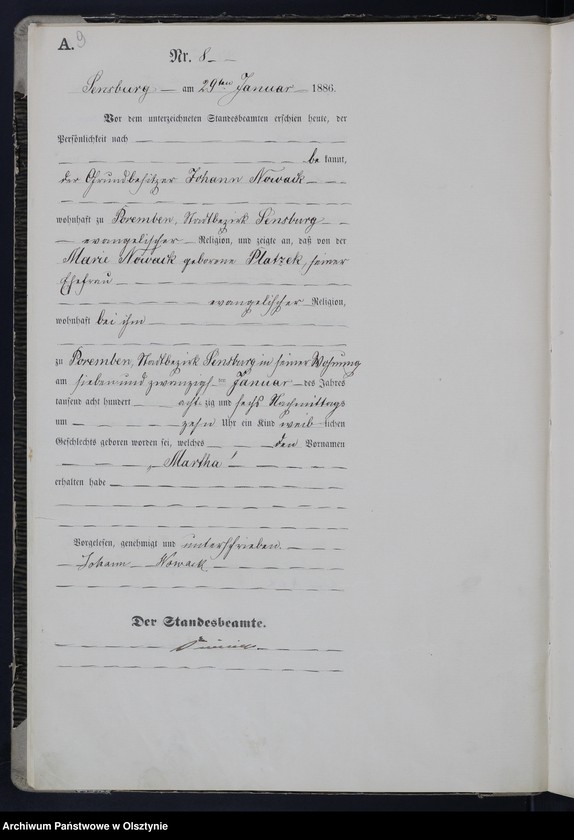 A. 9
Nr. 8
Sensburg am 29ten Januar 1886.
Vor dem unterzeichneten Standesbeamten erschien heute, der
Persönlichkeit nach
be kannt,
der Grundbesitzer Johann Nowack
wohnhaft zu Poremben, Stadtbezirk Sensburg
evangelischer Religion, und zeigte an, daß von der
Marie Nowack geborene Platzek, seiner
Ehefrau
evangelischer Religion,
wohnhaft bei ihm
zu Poremben, Stadtbezirk Sensburg in seiner Wohnung
am sieben und zwanzigsten Januar des Jahres
tausend acht hundert acht zig und sechs Nachmittags
um zehn Uhr ein Kind weib lichen
Geschlechts geboren worden sei, welches den Vornamen
„Martha“
erhalten habe
Vorgelesen, genehmigt und unterschrieben.
Johann Nowack.
Der Standesbeamte.
Archiwum Państwowe w Olsztynie